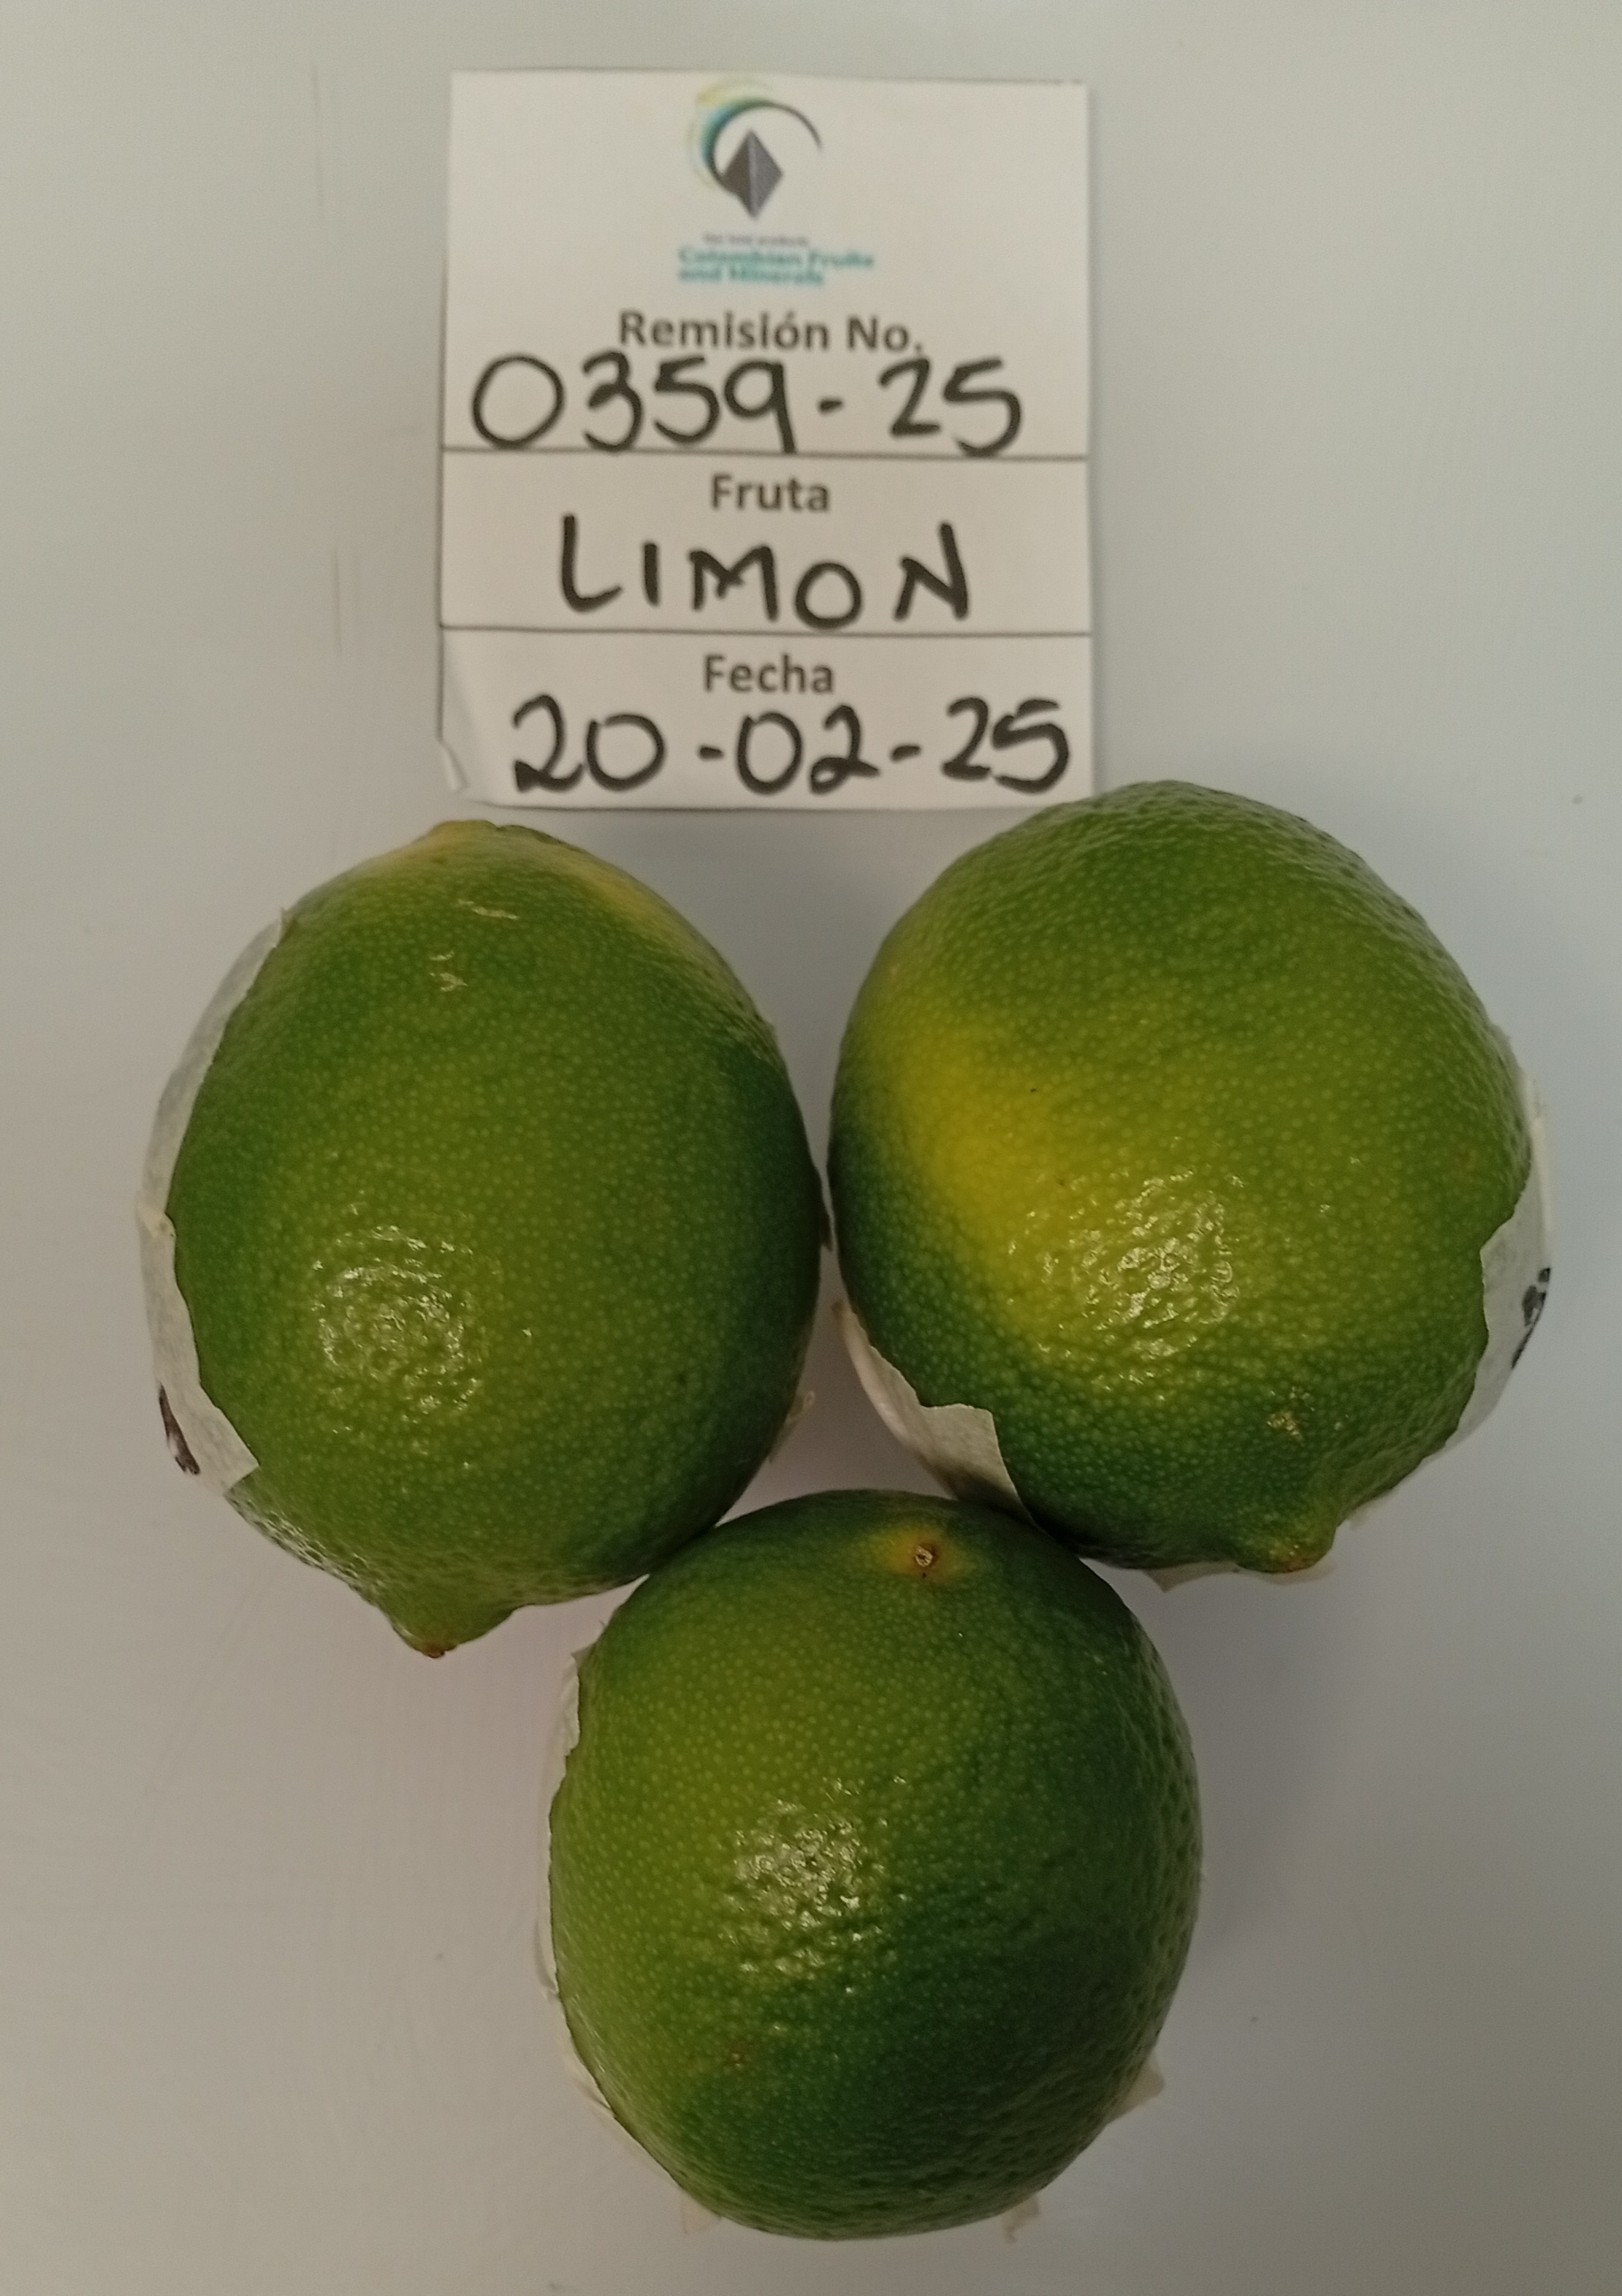 Colombian Fruits
and Minerals
Remisión No.
0359-25
Fruta
LIMON
Fecha
20-02-25